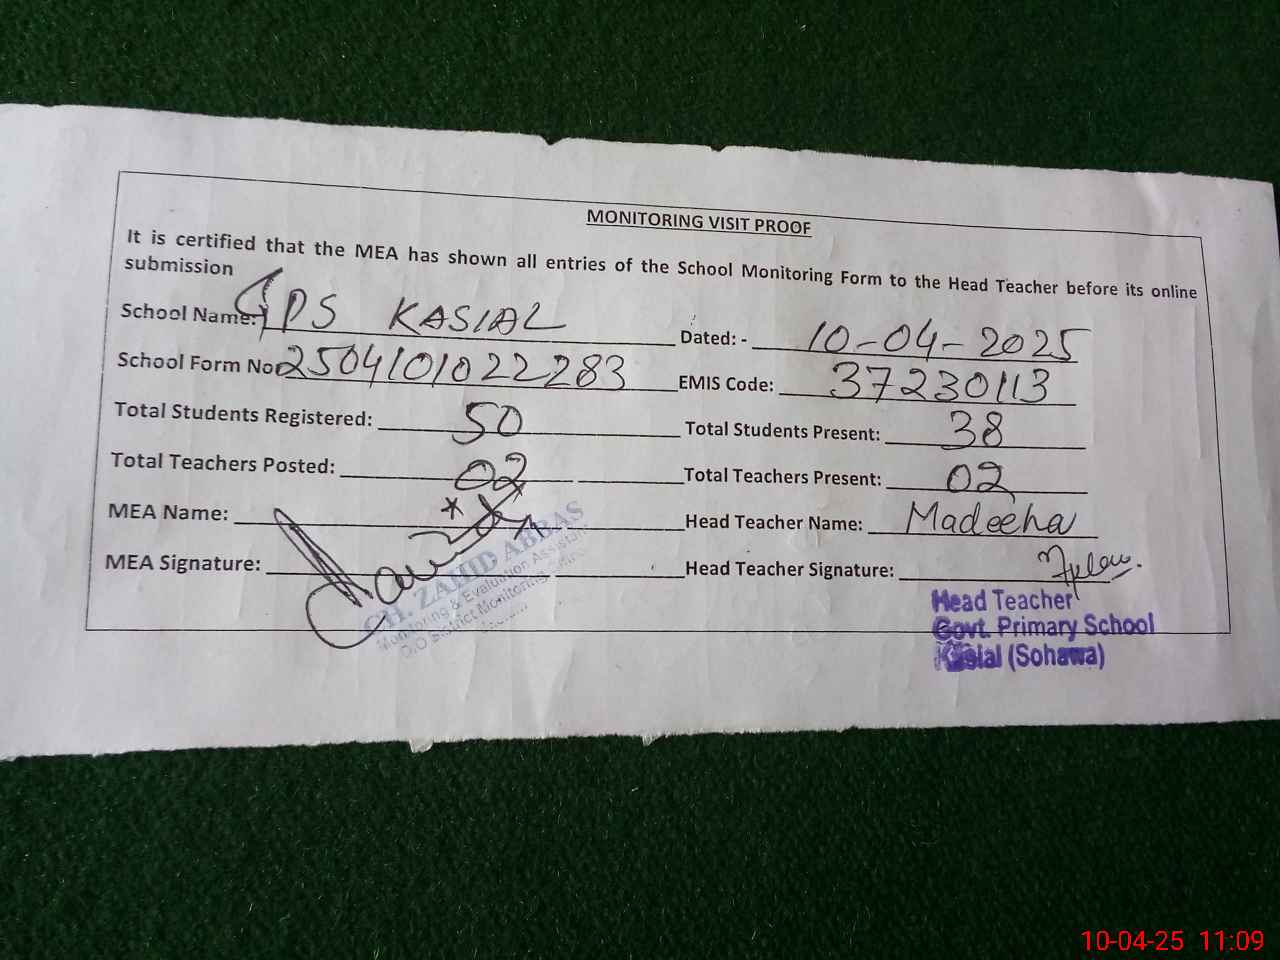 MONITORING VISIT PROOF
It is certified that the MEA has shown all entries of the School Monitoring Form to the Head Teacher before its online
submission
School Name: GPS KASIAL Dated: - 10-04-2025
School Form No 2504101022283 EMIS Code: 37230113
Total Students Registered: 50 Total Students Present: 38
Total Teachers Posted: 02 Total Teachers Present: 02
MEA Name: Head Teacher Name: Madeeha
MEA Signature: Head Teacher Signature:
CH. ZAHID ABBAS
Monitoring & Evaluation Assistant
D.O District Monitoring
Head Teacher
Govt. Primary School
Kasial (Sohawa)
10-04-25 11:09